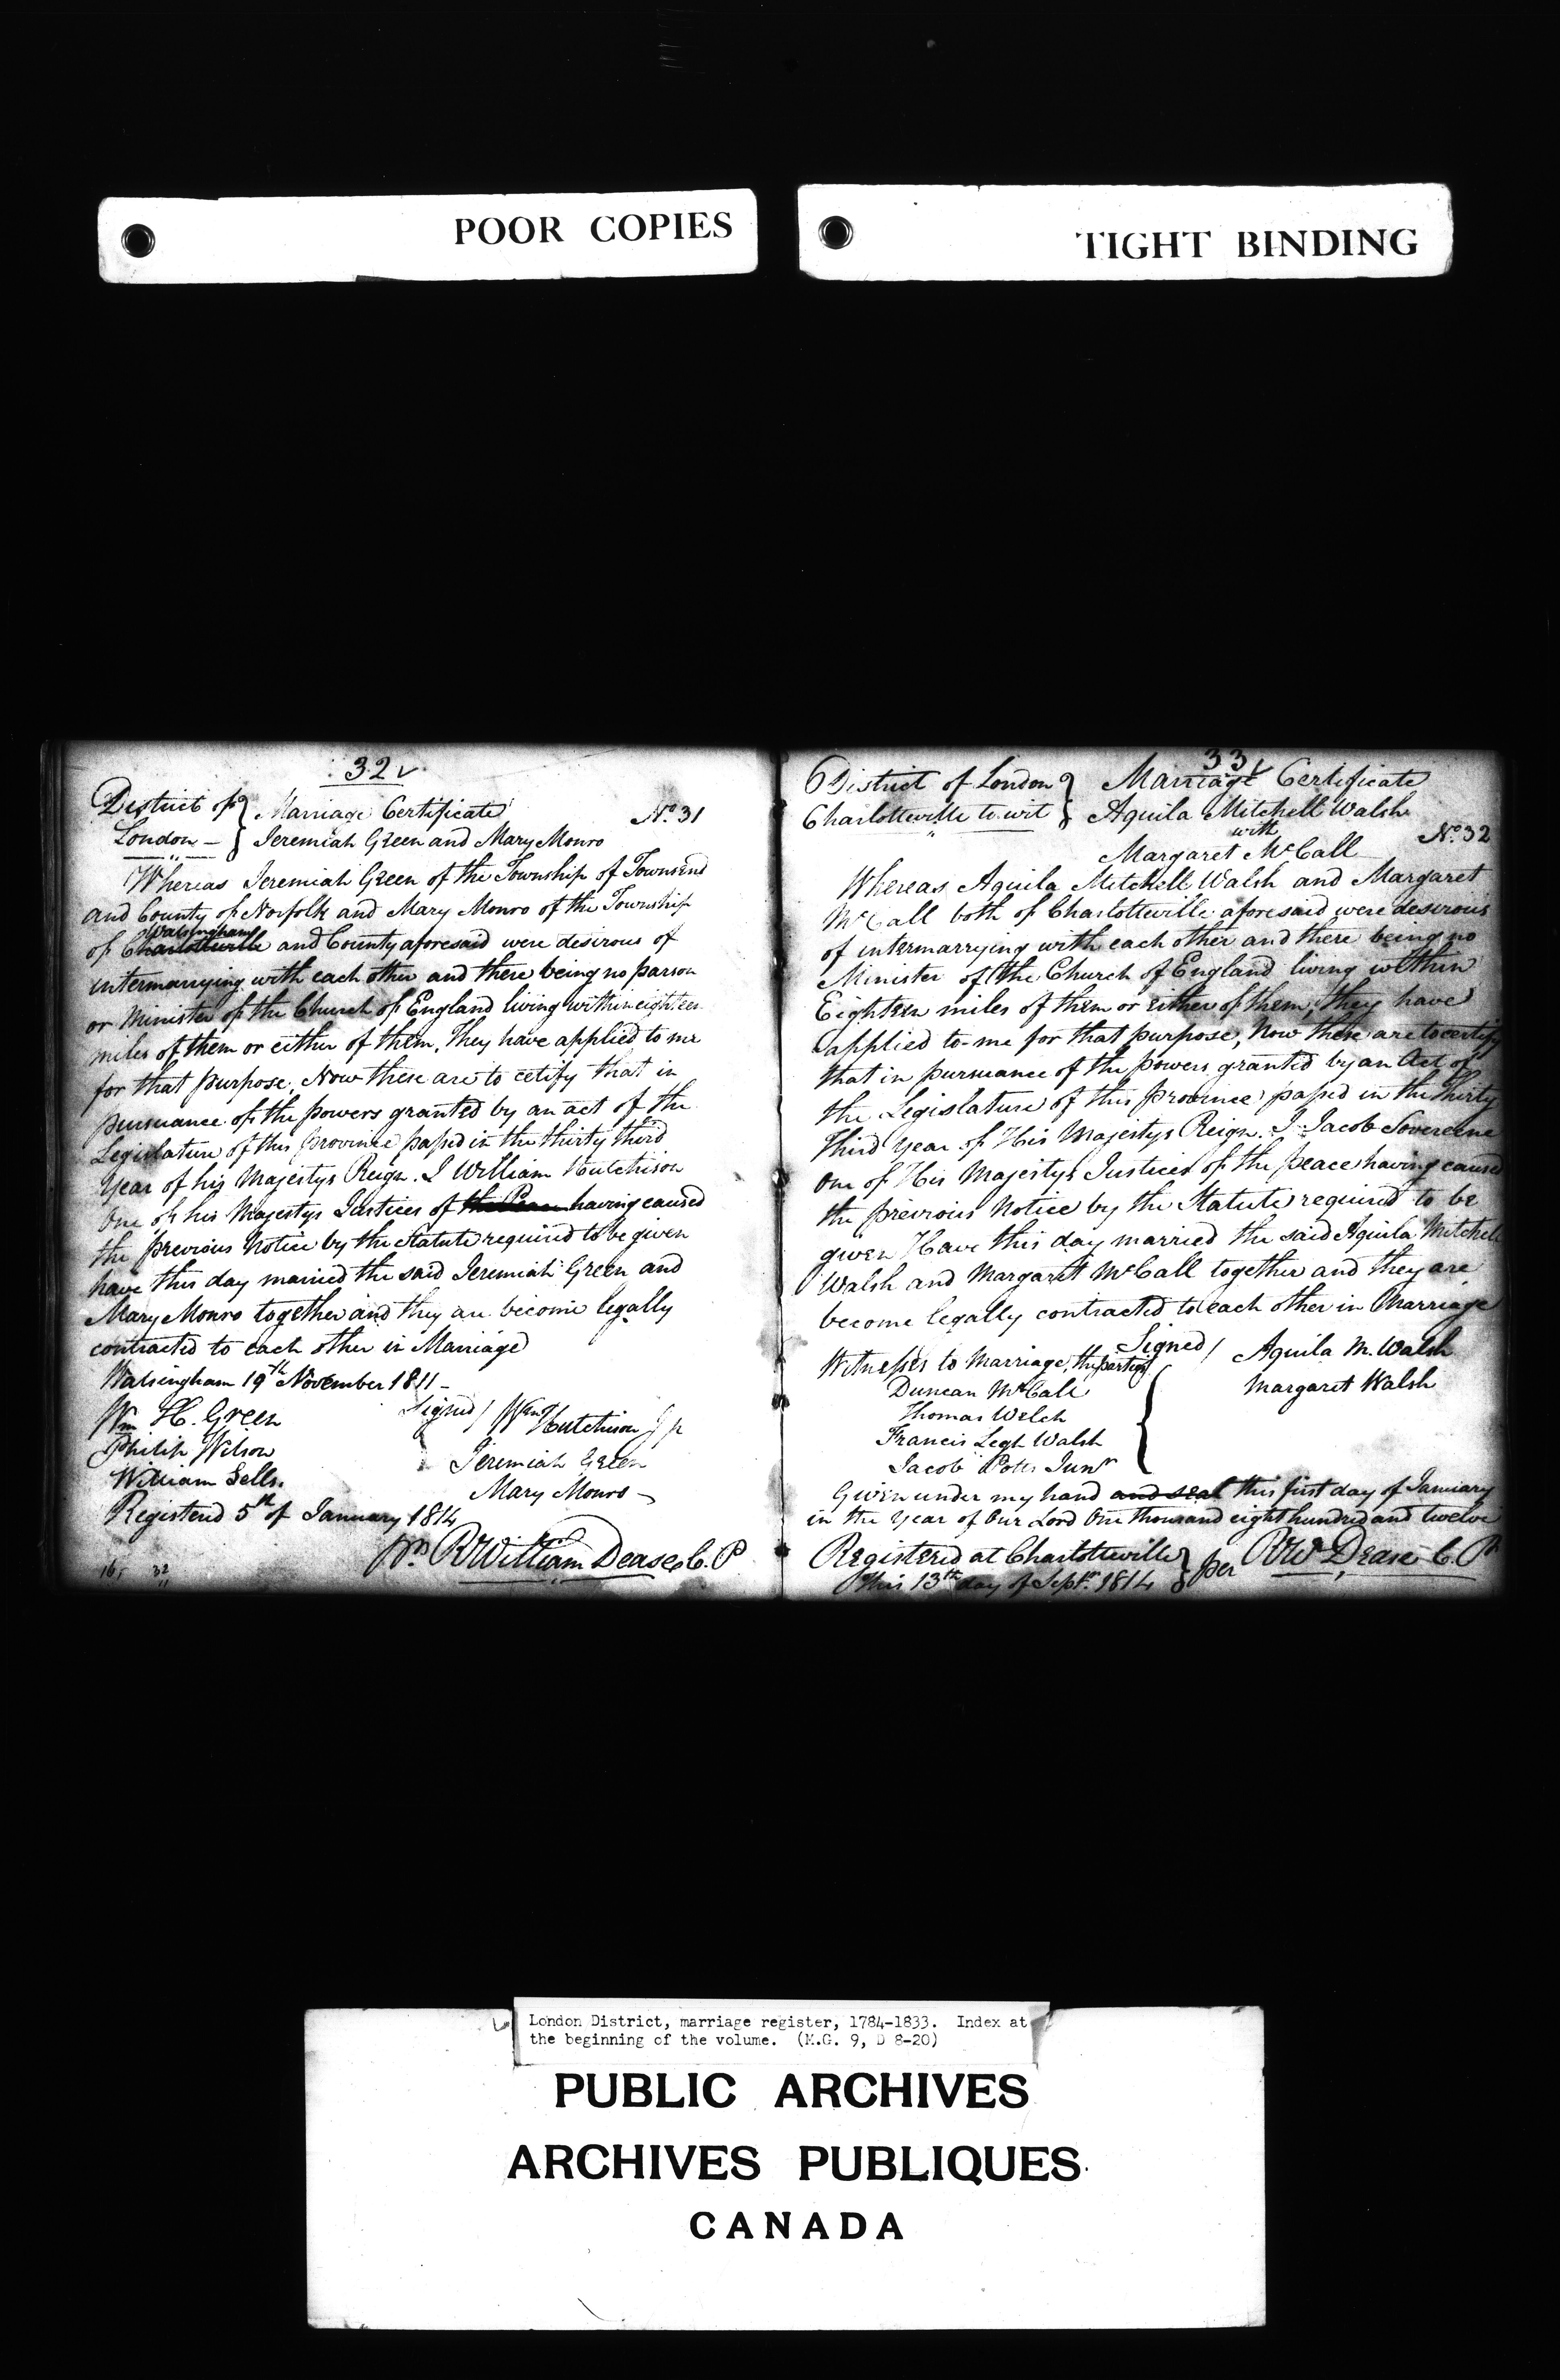 POOR COPIES
TIGHT BINDING
32
District of } Marriage Certificate No. 31
London — } Jeremiah Green and Mary Monro
Whereas Jeremiah Green of the Township of Townsend
and County of Norfolk and Mary Monro of the Township
Walsingham
of Charlotteville and County aforesaid were desirous of
intermarrying with each other and there being no parson
or Minister of the Church of England living within eighteen
miles of them or either of them, They have applied to me
for that purpose, Now these are to cetify that in
pursuance of the powers granted by an act of the
Legislature of this province passed in the thirty third
Year of his Majestys Reign. I William Hutchison
One of his Majestys Justices of the Peace having caused
the previous Notice by the Statute required to be given
have this day married the said Jeremiah Green and
Mary Monro together and they are become legally
contracted to each other in Marriage
Walsingham 19th November 1811 —
Wm H. Green Signed / Wm Hutchison J p
Philip Wilson Jeremiah Green
William Sells. Mary Monro —
Registered 5th of January 1814
William Dease C. P
16, 32
33
District of London } Marriage Certificate
Charlotteville to wit } Aquila Mitchell Walsh
with No. 32
Margaret McCall
Whereas Aquila Mitchell Walsh and Margaret
McCall both of Charlotteville aforesaid were desirous
of intermarrying with each other and there being no
Minister of the Church of England living within
Eighteen miles of them or either of them, they have
applied to me for that purpose, Now these are to certify
that in pursuance of the powers granted by an Act of
the Legislature of this province passed in the Thirty
Third Year of His Majestys Reign. I Jacob Sovereene
One of His Majestys Justices of the peace having caused
the previous Notice by the Statute required to be
given Have this day married the said Aquila Mitchell
Walsh and Margaret McCall together and they are
become legally contracted to each other in Marriage
Signed / Aquila M. Walsh
Witnesses to Marriage, the parties Margaret Walsh
Duncan McCall
Thomas Welch
Francis Legh Walsh
Jacob Potts Junr
Given under my hand and seal this first day of January
in the Year of Our Lord One thousand eight hundred and twelve
Registered at Charlotteville } per RW Dease C. P
this 13th day of Septr. 1814
London District, marriage register, 1784-1833. Index at
the beginning of the volume. (M.G. 9, D 8-20)
PUBLIC ARCHIVES
ARCHIVES PUBLIQUES
CANADA